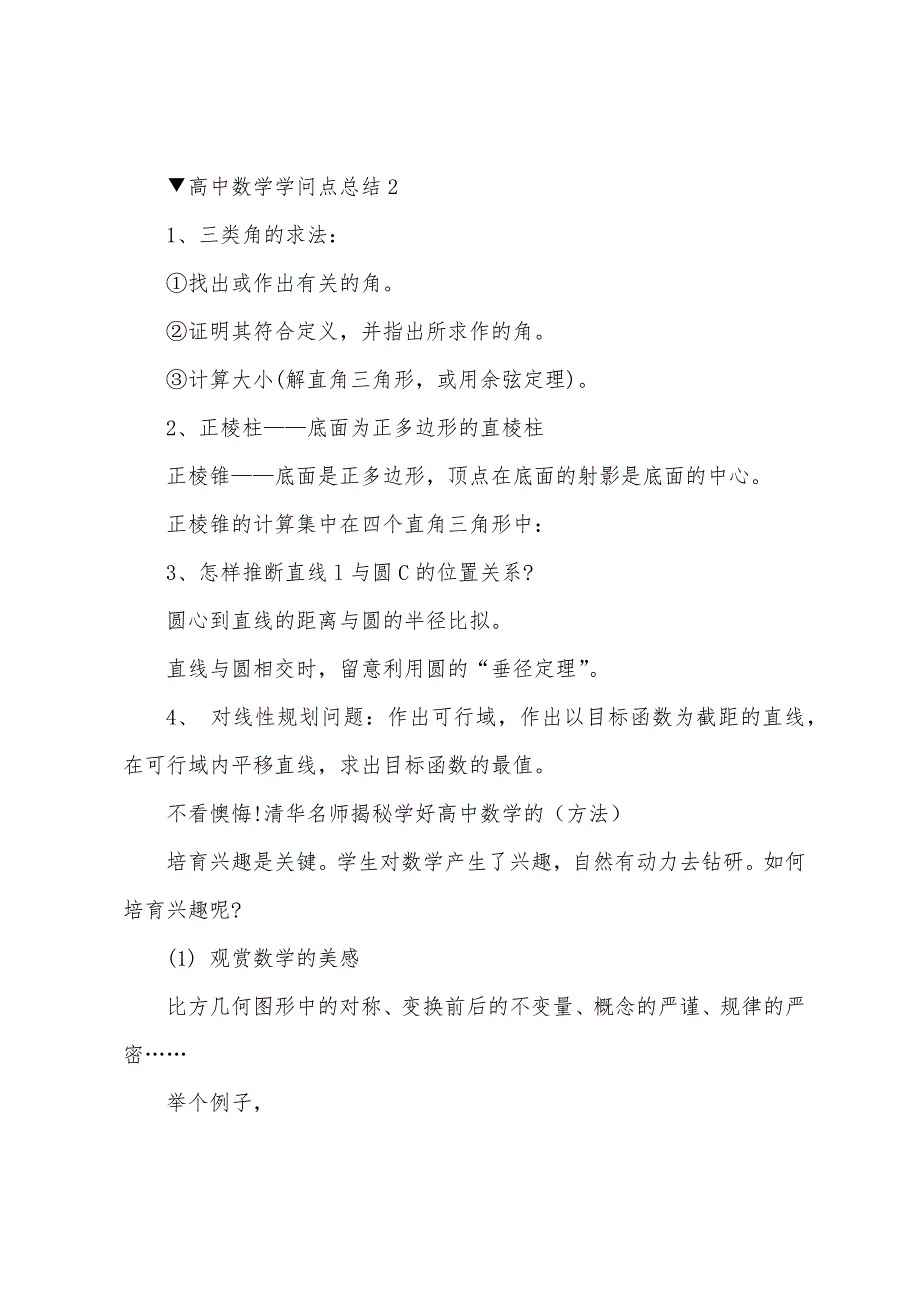 ▼高中数学学问点总结2
1、三类角的求法:
①找出或作出有关的角。
②证明其符合定义,并指出所求作的角。
③计算大小(解直角三角形,或用余弦定理)。
2、正棱柱——底面为正多边形的直棱柱
正棱锥——底面是正多边形,顶点在底面的射影是底面的中心。
正棱锥的计算集中在四个直角三角形中:
3、怎样推断直线l与圆C的位置关系?
圆心到直线的距离与圆的半径比拟。
直线与圆相交时,留意利用圆的“垂径定理”。
4、 对线性规划问题:作出可行域,作出以目标函数为截距的直线,
在可行域内平移直线,求出目标函数的最值。
不看懊悔!清华名师揭秘学好高中数学的（方法）
培育兴趣是关键。学生对数学产生了兴趣,自然有动力去钻研。如何
培育兴趣呢?
(1) 观赏数学的美感
比方几何图形中的对称、变换前后的不变量、概念的严谨、规律的严
密……
举个例子,